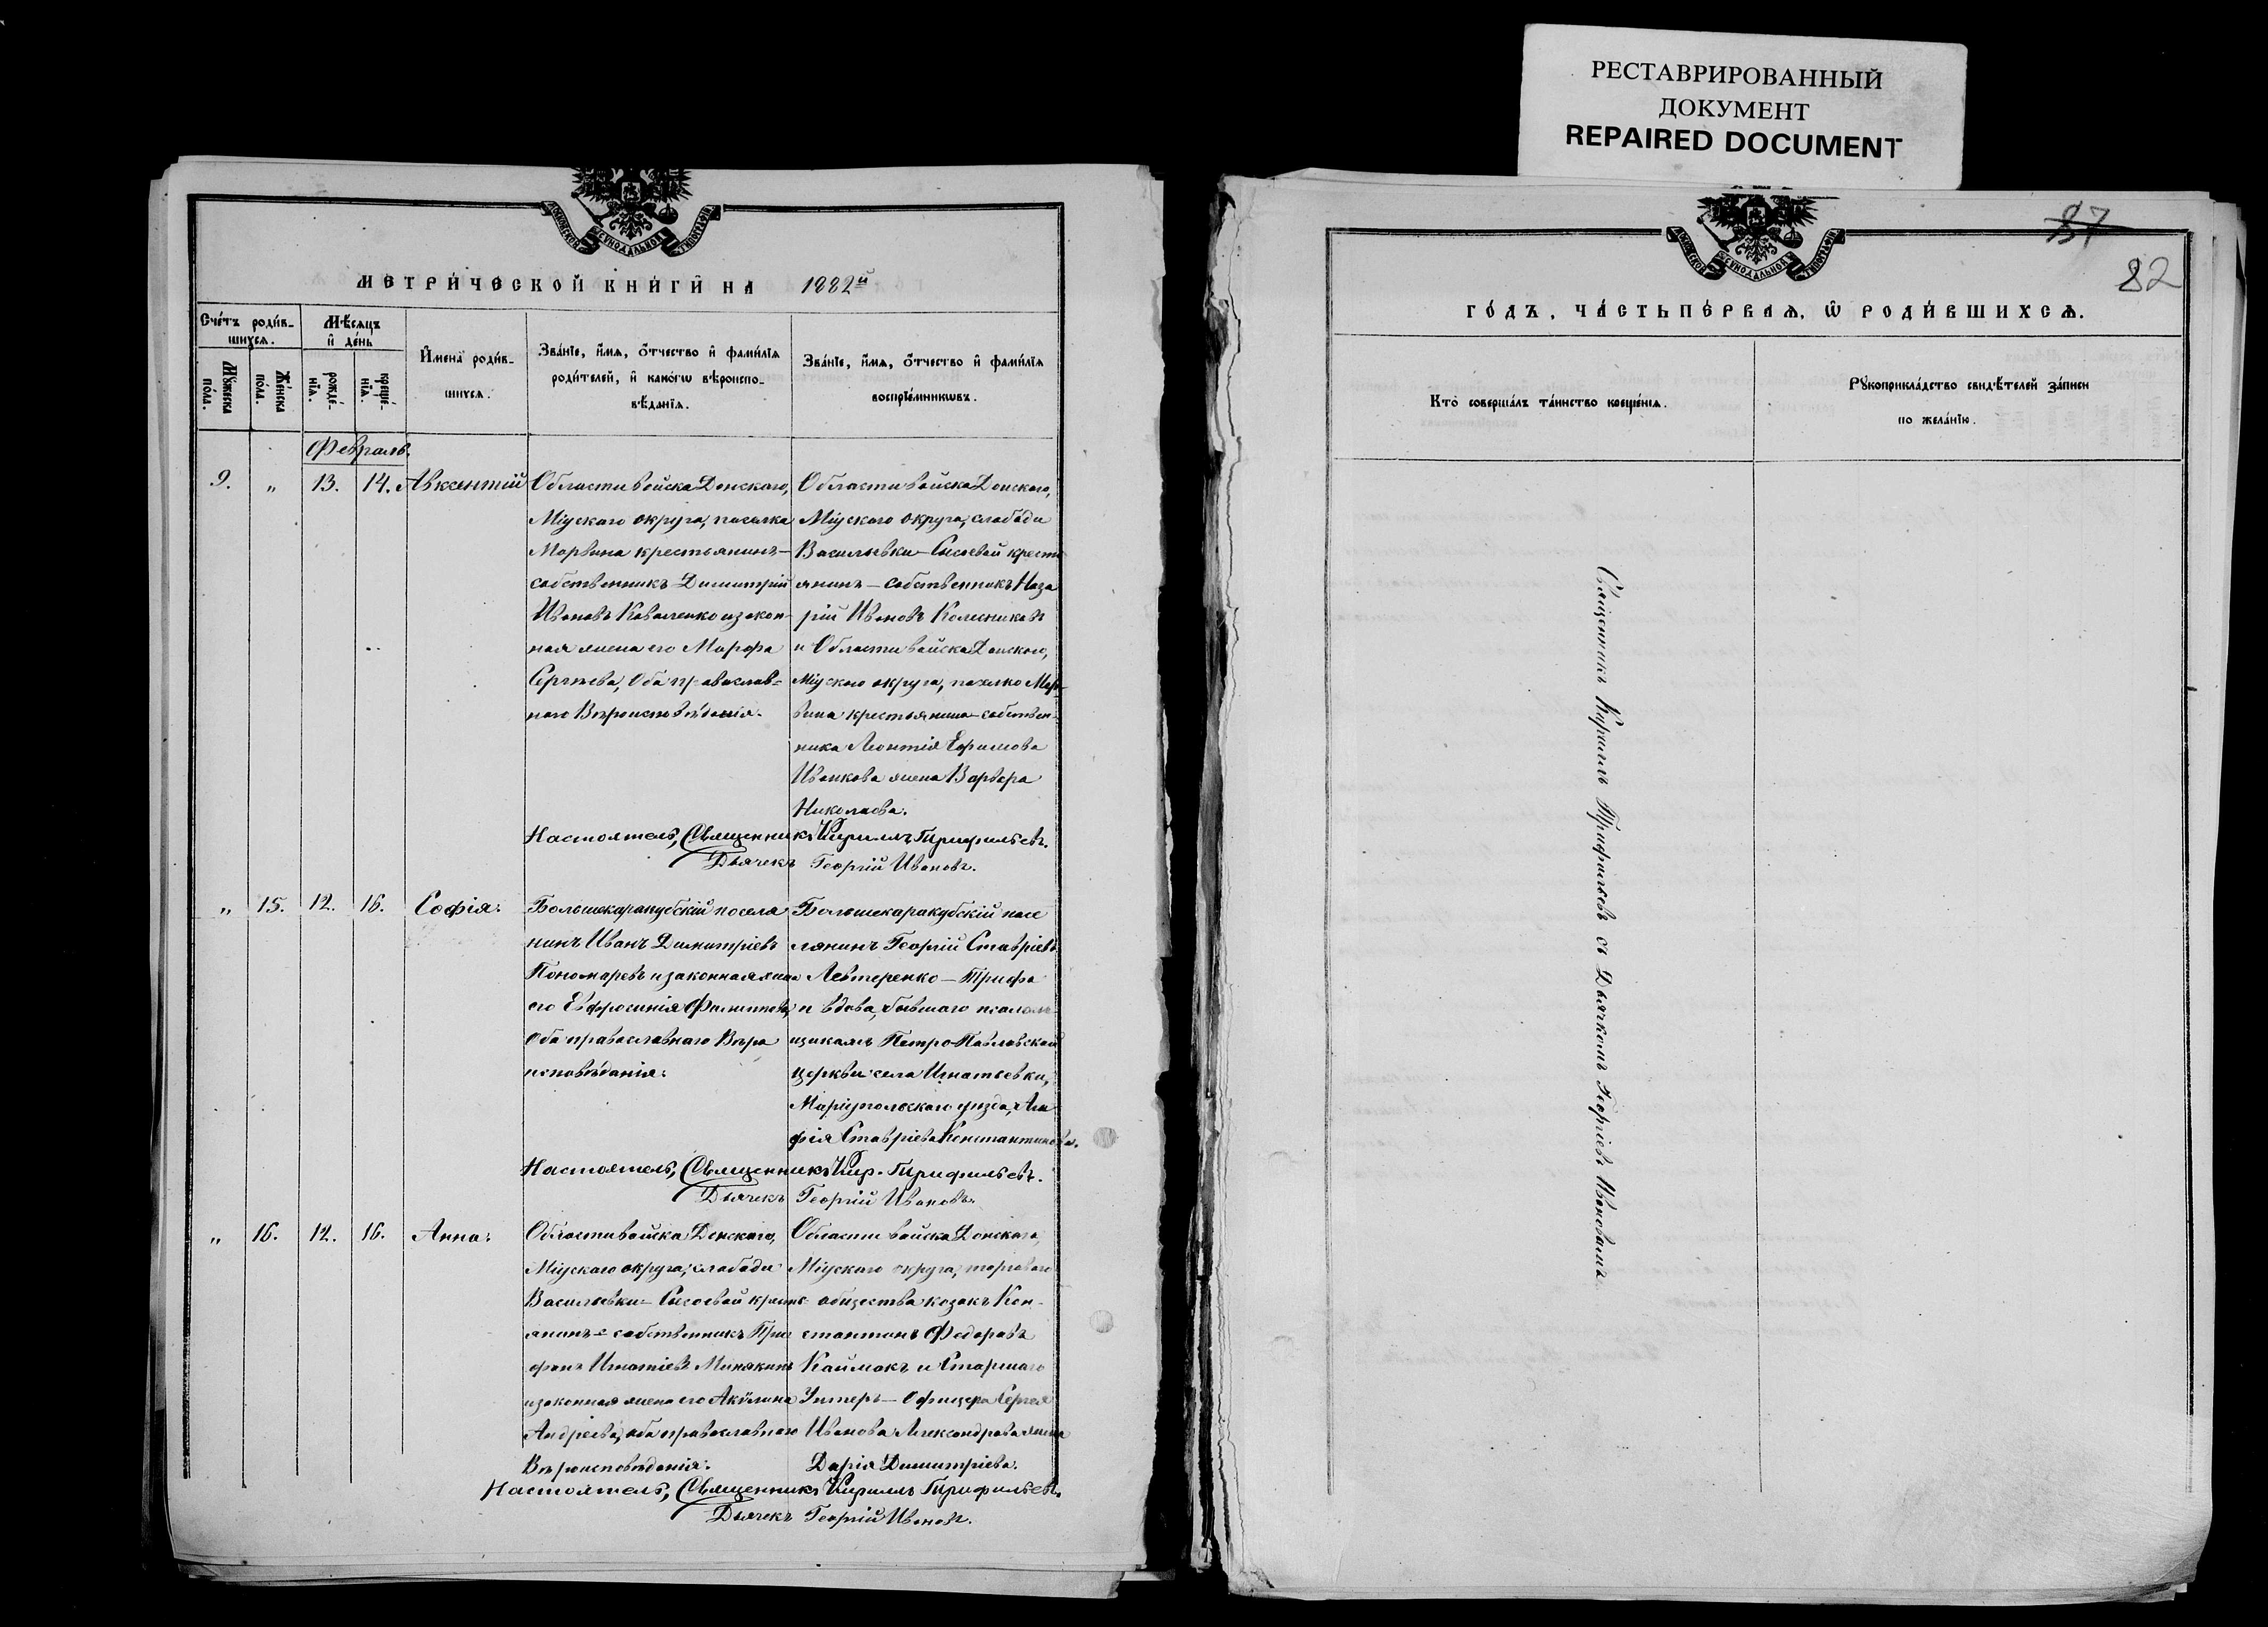 РЕСТАВРИРОВАННЫЙ
ДОКУМЕНТ
REPAIRED DOCUMENT
МОСКОВСКОЙ СѴНОДАЛЬНОЙ ТИПОГРАФІИ
МЕТРИ́ЧЕСКОЙ КНИ́ГИ НА 1882й
Сче́тъ роди́в-
шихсѧ.
Мѣ́сѧцъ
и҆ де́нь
Мꙋ́жеска
по́ла.
Же́нска
по́ла.
рожде́-
нїѧ.
креще́-
нїѧ.
И҆мена̀ роди́в-
шихсѧ.
Зва́нїе, и҆́мѧ, ѻ҆́тчество и҆ фами́лїѧ
роди́телей, и҆ како́гѡ вѣроиспо-
вѣ́данїѧ.
Зва́нїе, и҆́мѧ, ѻ҆́тчество и҆ фами́лїѧ
воспрїе́мникѡвъ.
Февраль.
9. „ 13. 14. Авксентій
Области войска Донскаго,
Міускаго округа, поселка
Морвина крестьянинъ–
собственникъ Димитрій
Ивановъ Коваленко и закон-
ная жена его Марфа
Сергѣева, Оба православ-
наго Вѣроисповѣданія.
Области войска Донскаго,
Міускаго округа, слободы
Васильевки–Сысоевой кресть
янинъ–собственникъ Наза
рій Ивановъ Колесниковъ
и Области войска Донскаго,
Міускаго округа, поселка Мор-
вина крестьянина–собствен-
ника Леонтія Ефимова
Иванкова жена Варвара
Николаева.
Настоятель, Священникъ Кириллъ Трифильевъ.
Дьячекъ Георгій Ивановъ.
„ 15. 12. 16. Софія.
Большекаракубскій поселя
нинъ Иванъ Димитріевъ
Пономаревъ и законная жена
его Евфросинія Филиппова,
Оба православнаго Вѣро
исповѣданія.
Большекаракубскій посе
лянинъ Георгій Ставріевъ
Левтеренко–Трифа
и вдова, бывшаго псалом-
щикамъ Петро-Павловской
церкви села Игнатьевки,
Маріупольскаго уѣзда, Ага
фія Ставріева Константинова.
Настоятель, Священникъ Кир. Трифильевъ.
Дьячекъ Георгій Ивановъ.
„ 16. 12. 16. Анна.
Области войска Донскаго,
Міускаго округа, слободы
Васильевки–Сысоевой кресть
янинъ–собственникъ Три
фонъ Игнатіевъ Минякинъ
и законная жена его Акулина
Андреева, оба православнаго
Вѣроисповѣданія.
Области войска Донскаго,
Міускаго округа, торговаго
общества козакъ Кон-
стантинъ Федоровъ
Каймакъ и Старшаго
Унтеръ–Офицера Сергея
Иванова Александрова жена
Дарія Димитріева.
Настоятель, Священникъ Кириллъ Трифильевъ.
Дьячекъ Георгій Ивановъ.
МОСКОВСКОЙ СѴНОДАЛЬНОЙ ТИПОГРАФІИ
87
82
ГО́ДЪ, ЧА́СТЬ ПЕ́РВАѦ, Ѡ҆ РОДИ́ВШИХСѦ.
Кто̀ соверша́лъ та́инство креще́нїѧ.
Рꙋкоприкла́дство свидѣ́телей за́писи
по жела́нїю.
Священникъ Кириллъ Трифильевъ съ Дьячкомъ Георгіемъ Ивановымъ